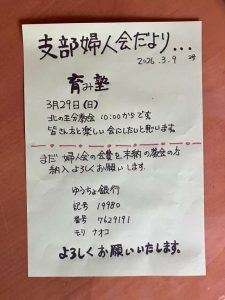 支部婦人会だより...
2026.3.9
育み塾
3月29日(日)
北の王分教会 10:00からです
皆さん方と楽しい会にしたいと思います。
まだ 婦人会の会費を未納の教会の方
納入よろしくお願いします。
ゆうちょ銀行
記号 19980
番号 7629191
モリ ナオコ
よろしくお願いいたします。